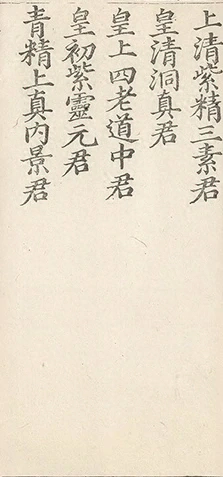 上清紫精三素君
皇清洞真君
皇上四老道中君
皇初紫靈元君
青精上真内景君